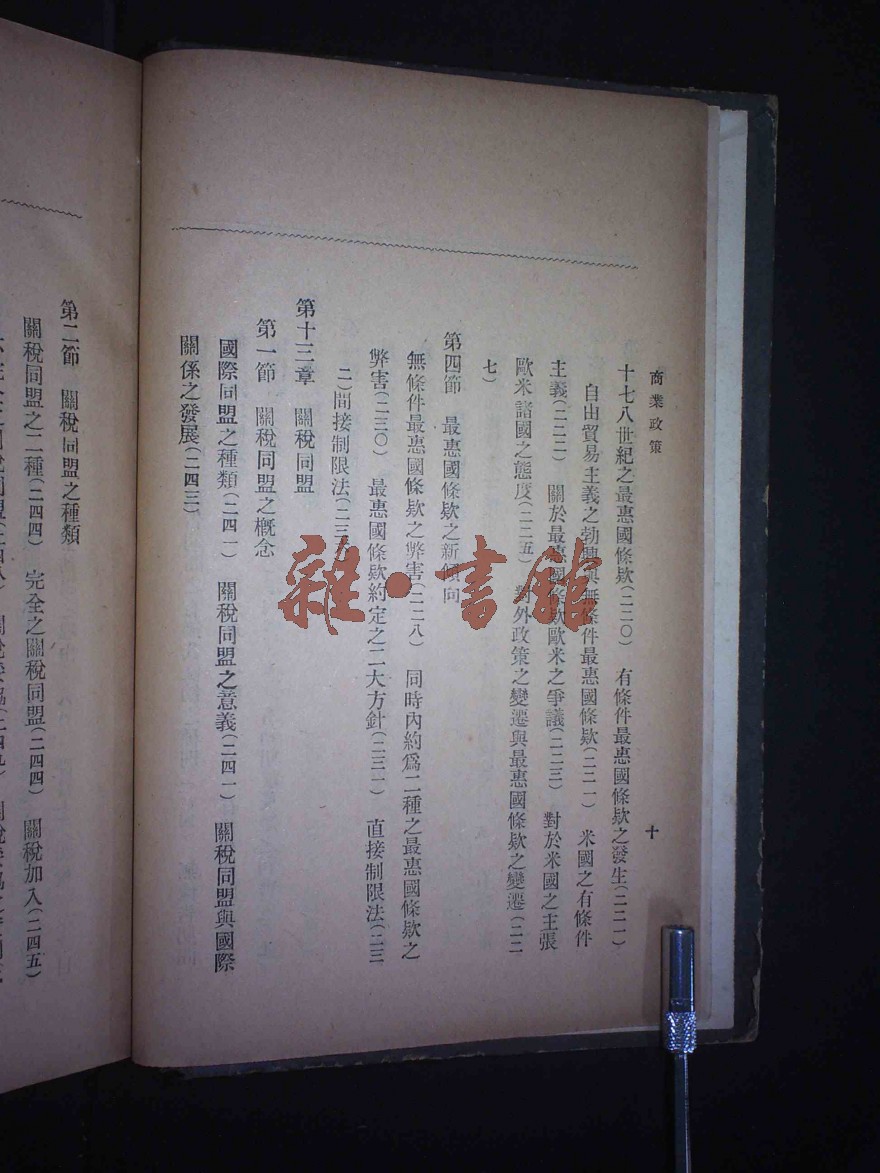 商業政策
十
十七八世紀之最惠國條欵(二二〇)　有條件最惠國條欵之發生(二二一)
自由貿易主義之勃興與無條件最惠國條欵(二二一)　米國之有條件
主義(二二二)　關於最惠國條欵歐米之爭議(二二三)　對於米國之主張
歐米諸國之態度(二二五)　對外政策之變遷與最惠國條欵之變遷(二二
七)
第四節　最惠國條欵之新傾向
無條件最惠國條欵之弊害(二二八)　同時內約爲二種之最惠國條欵之
弊害(二三〇)　最惠國條欵約定之二大方針(二三一)　直接制限法(二三
二)間接制限法(二三
第十三章　關稅同盟
第一節　關稅同盟之概念
國際同盟之種類(二四一)　關稅同盟之意義(二四一)　關稅同盟與國際
關係之發展(二四三)
第二節　關稅同盟之種類
關稅同盟之二種(二四四)　完全之關稅同盟(二四四)　關稅加入(二四五)
雜·書館